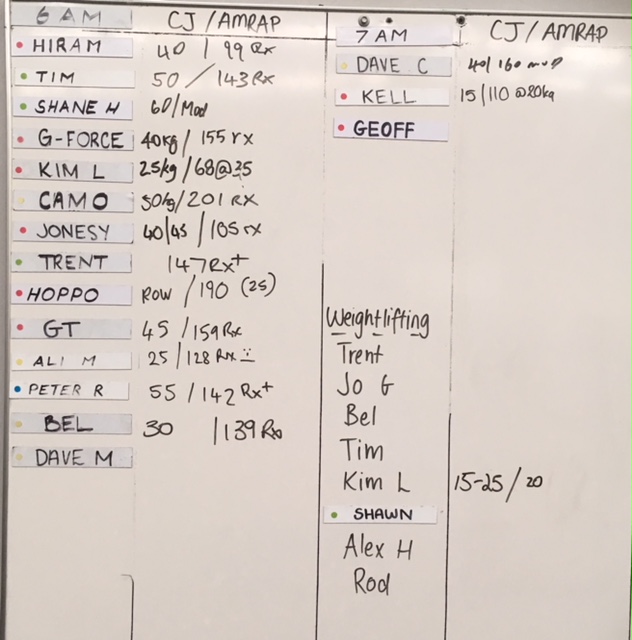 6 AM CJ/AMRAP
HIRAM 40 / 99 Rx
TIM 50 / 143 Rx
SHANE H 60/Mod
G-FORCE 40kg / 155 rx
KIM L 25kg /68@35
CAMO 50kg/201 RX
JONESY 40/45 /105 rx
TRENT 147 Rx+
HOPPO ROW /190 (25)
GT 45 /159 Rx
ALI M 25 /128 Rx
PETER R 55 /142 Rx+
BEL 30 /139 Rx
DAVE M
7 AM CJ/AMRAP
DAVE C 40/160
KELL 15/110 @20kg
GEOFF
Weightlifting
Trent
Jo G
Bel
Tim
Kim L 15-25/20
SHAWN
Alex H
Rod